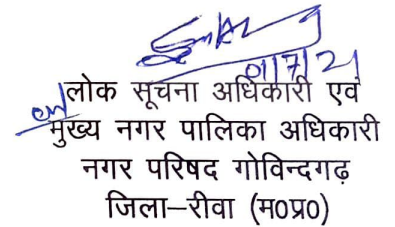 01/7/21
लोक सूचना अधिकारी एवं
मुख्य नगर पालिका अधिकारी
नगर परिषद गोविन्दगढ़
जिला–रीवा (म0प्र0)